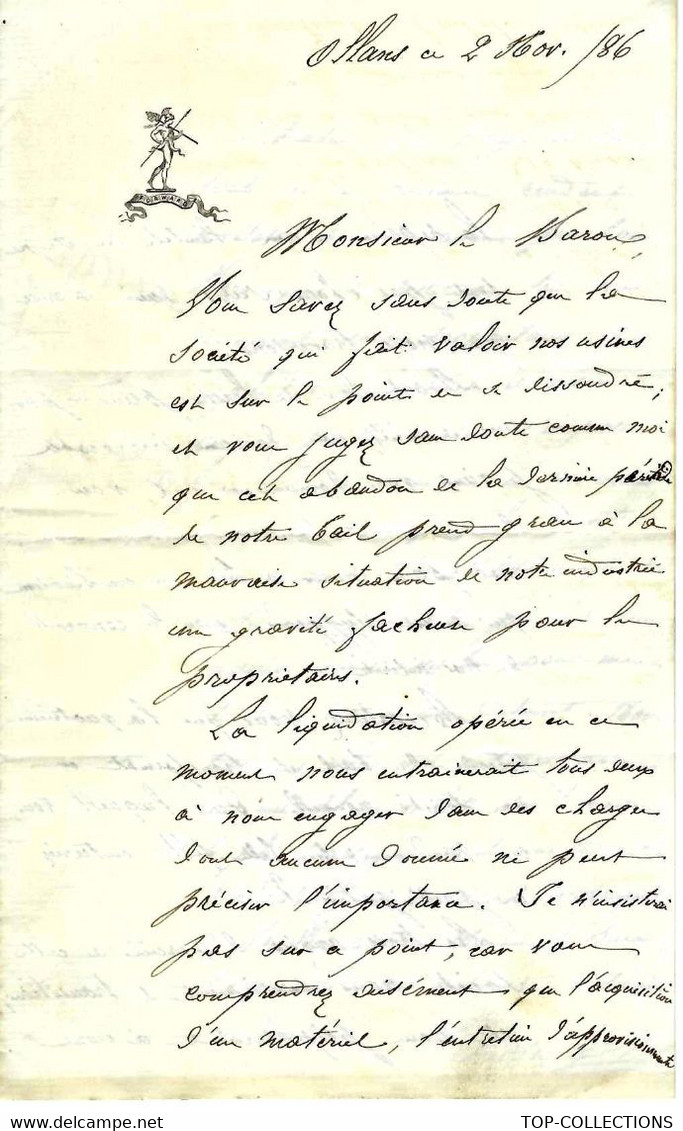 Ollans ce 2 Nov. /86
FORWARD
Monsieur le Baron,
Vous savez sans doute que la
société qui fait valoir nos usines
est sur le point de se dissoudre;
et vous jugez sans doute comme moi
que cet abandon de la dernière période
de notre bail prend grace à la
mauvaise situation de notre industrie
une gravité facheuse pour les
propriétaires.
La liquidation opérée en ce
moment nous entrainerait tous deux
à nous engager dans des charges
dont aucune donnée ne peut
préciser l'importance. Je n'insisterai
pas sur ce point, car vous
comprendrez aisément que l'acquisition
d'un matériel, l'entretien d'approvisionnements
TOP-COLLECTIONS